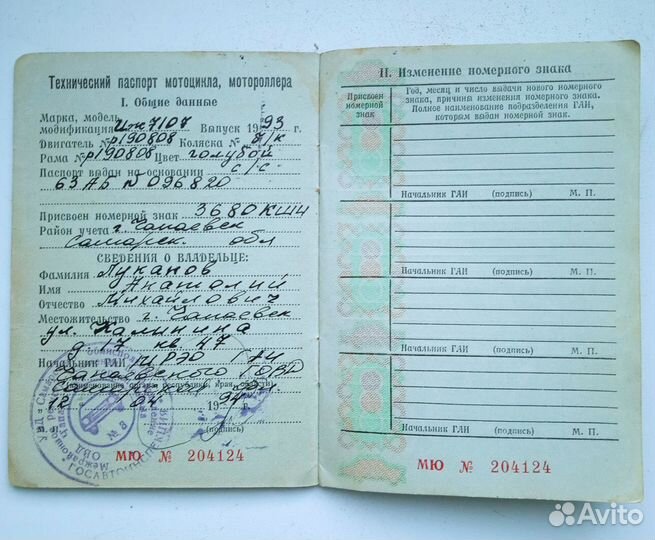 Технический паспорт мотоцикла, мотороллера
I. Общие данные
Марка, модель
модификация Иж 7107 Выпуск 1993 г.
Двигатель № р190808 Коляска № б/к
Рама № р190808 Цвет голубой
Паспорт выдан на основании с/с
63 АБ N 096820
Присвоен номерной знак 3680 КШЧ
Район учета г. Чапаевск
Самарск. обл
СВЕДЕНИЯ О ВЛАДЕЛЬЦЕ:
Фамилия Луканов
Имя Анатолий
Отчество Михайлович
Местожительство г. Чапаевск
ул. Калинина
д 17 кв 47
Начальник ГАИ МРЭО ГАИ
Чапаевского ГОВД
(наименование органа республики, края, области)
12 04 1994
М. П. (подпись)
ГОСАВТОИНСПЕКЦ
ОВД
МЮ № 204124
II. Изменение номерного знака
Присвоен номерной знак
Год, месяц и число выдачи нового номерного
знака, причина изменения номерного знака.
Полное наименование подразделения ГАИ,
которым выдан номерной знак.
Начальник ГАИ (подпись) М. П.
Начальник ГАИ (подпись) М. П.
Начальник ГАИ (подпись) М. П.
Начальник ГАИ (подпись) М. П.
МЮ № 204124
Avito